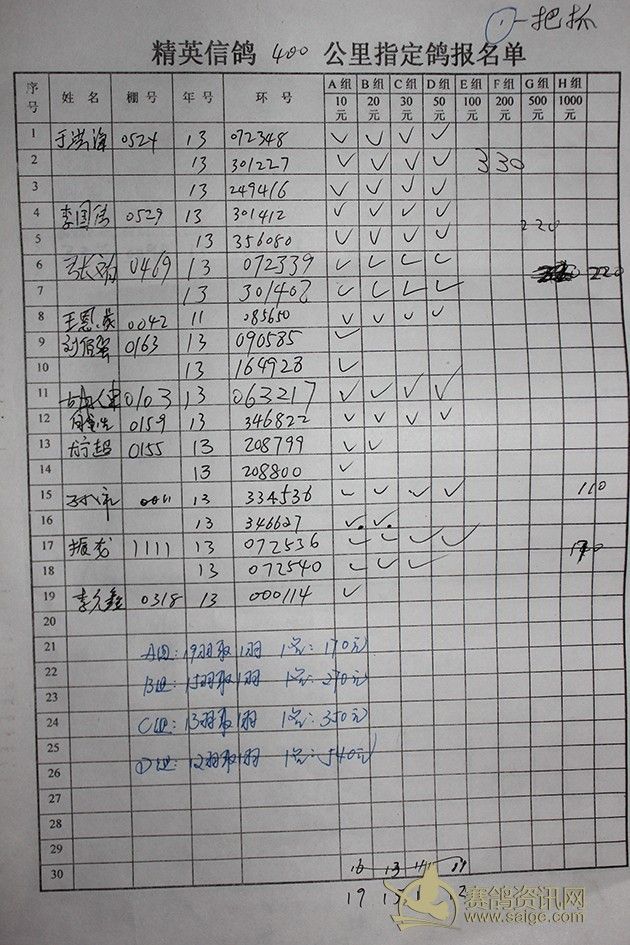 ①一把抓
精英信鸽 400 公里指定鸽报名单
序号 姓 名 棚 号 年 号 环 号 A组 B组 C组 D组 E组 F组 G组 H组
10元 20元 30元 50元 100元 200元 500元 1000元
1 0524 13 072348 ✓ ✓ ✓ ✓
2 13 301227 ✓ ✓ ✓ ✓ 330
3 13 249416 ✓ ✓ ✓ ✓
4 0529 13 301412 ✓ ✓ ✓ ✓
5 13 356080 ✓ ✓ ✓ ✓ 220
6 0469 13 072339 ✓ ✓ ✓ ✓ 220
7 13 301402 ✓ ✓ ✓ ✓
8 0042 11 085650 ✓ ✓ ✓ ✓
9 0163 13 090585 ✓
10 13 164928 ✓
11 0103 13 063217 ✓ ✓ ✓ ✓
12 0159 13 346822 ✓ ✓ ✓ ✓
13 0155 13 208799 ✓ ✓
14 13 208800 ✓
15 13 334536 ✓ ✓ ✓ ✓ 110
16 13 346627 ✓ ✓
17 振龙 1111 13 072536 ✓ ✓ ✓ ✓
18 13 072540 ✓ ✓ ✓
19 李允鑫 0318 13 000114 ✓
20
21 A组:19羽取1羽 1名:170元
22 B组:15羽取1羽 1名:270元
23
24 C组:13羽取1羽 1名:350元
25 D组:12羽取1羽 1名:540元
26
27
28
29
30
19
赛鸽资讯网
www.saige.com